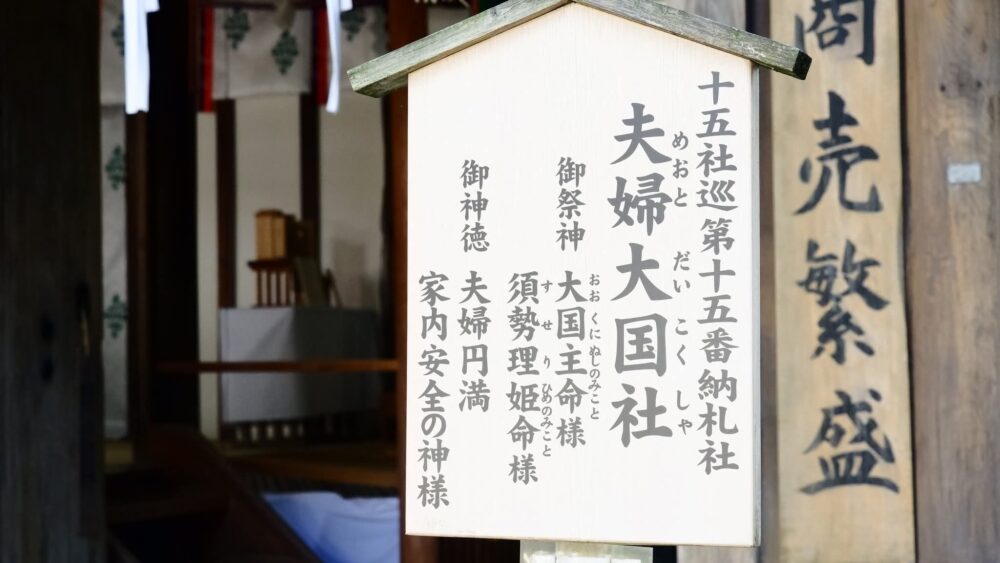 商売繁盛
十五社巡 第十五番納札社
めおと だいこくしゃ
夫婦大国社
おおくにぬしのみこと
御祭神 大国主命様
すせりひめのみこと
須勢理姫命様
御神徳 夫婦円満
家内安全の神様